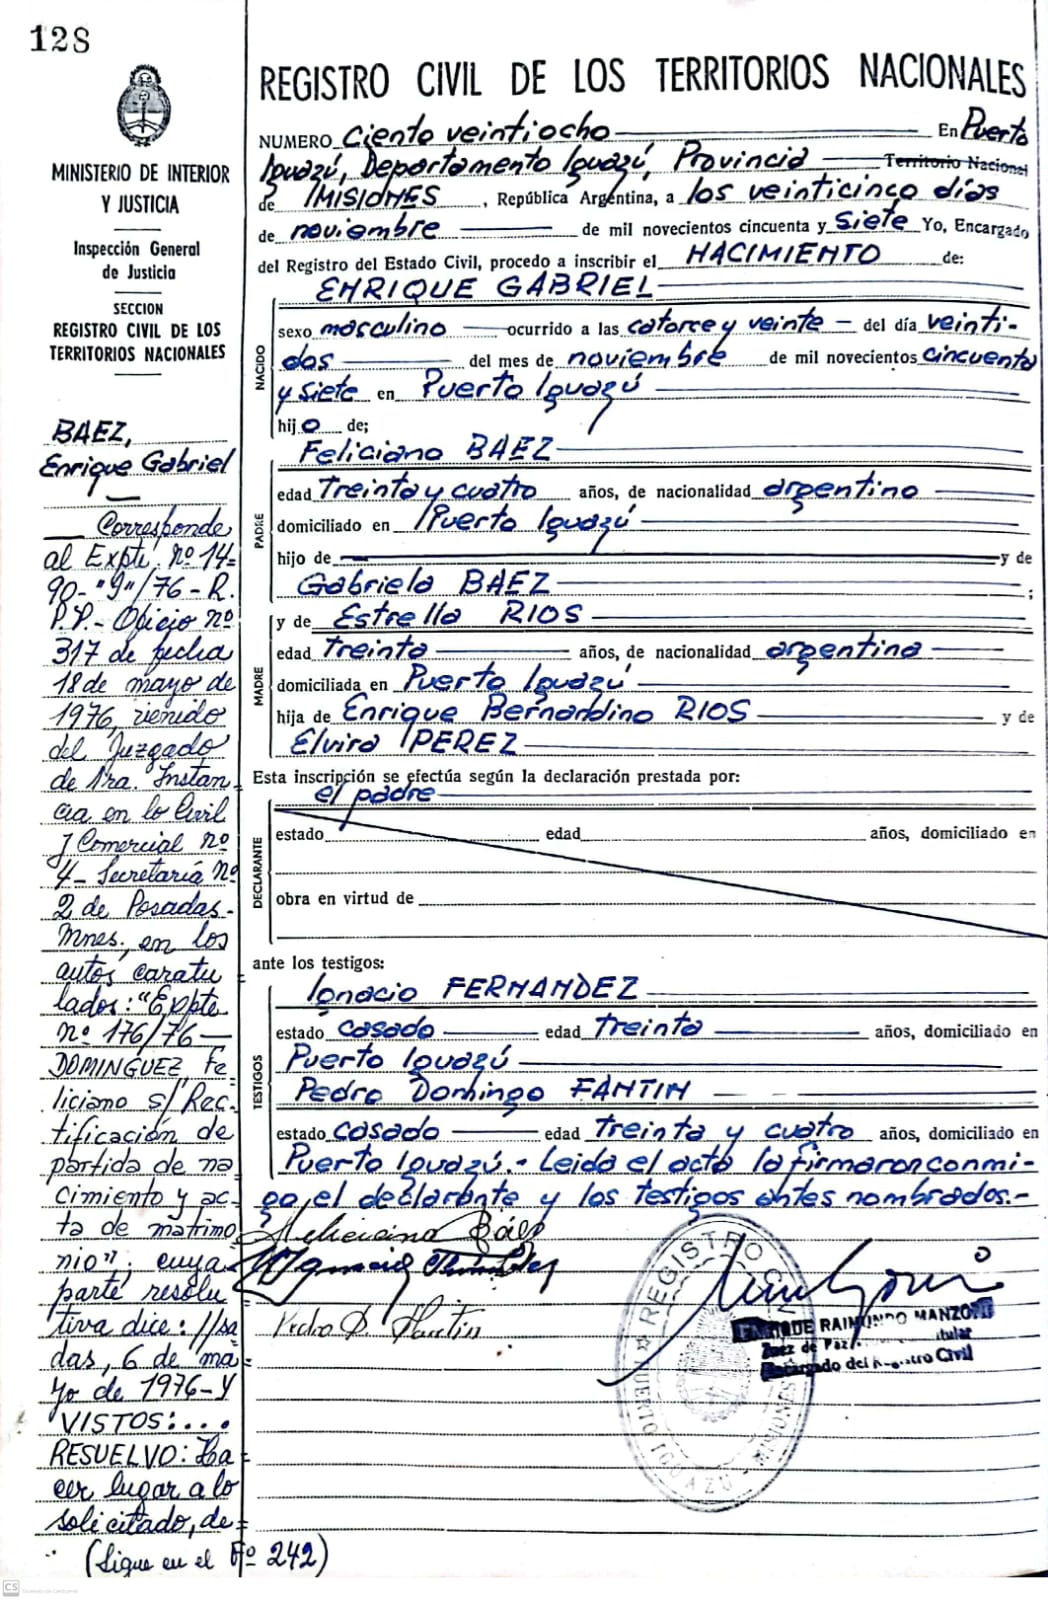 128
MINISTERIO DE INTERIOR
Y JUSTICIA
Inspección General
de Justicia
SECCION
REGISTRO CIVIL DE LOS
TERRITORIOS NACIONALES
BAEZ,
Enrique Gabriel
Corresponde
al Expte. nº 14=
90-"9"/76-R.
P.P.- Oficio nº
317 de fecha
18 de mayo de
1976, venido
del Juzgado
de 1ra. Instan
cia en lo Civil
y Comercial nº
4- Secretaría Nº
2 de Posadas-
Mnes., en los
autos caratu
lados: "Expte
nº 176/76-
DOMINGUEZ, Fe
liciano s/ Rec-
tificación de
partida de na
cimiento y ac-
ta de matrimo
nio"; cuya
parte resolu
tiva dice: //sa
das, 6 de ma=
yo de 1976-Y
VISTOS:...
RESUELVO: Ha=
cer lugar a lo
solicitado, de=
(Sigue en el Fº 242)
REGISTRO CIVIL DE LOS TERRITORIOS NACIONALES
NUMERO Ciento veintiocho En Puerto
Iguazú, Departamento Iguazú, Provincia Territorio Nacional
de MISIONES, República Argentina, a los veinticinco días
de noviembre de mil novecientos cincuenta y siete Yo, Encargado
del Registro del Estado Civil, procedo a inscribir el NACIMIENTO de:
NACIDO
ENRIQUE GABRIEL
sexo masculino ocurrido a las catorce y veinte - del día veinti-
dos del mes de noviembre de mil novecientos cincuenta
y siete en Puerto Iguazú
hijo de;
PADRE
Feliciano BAEZ
edad Treinta y cuatro años, de nacionalidad argentino
domiciliado en Puerto Iguazú
hijo de y de
Gabriela BAEZ ;
MADRE
y de Estrella RIOS
edad Treinta años, de nacionalidad argentina
domiciliada en Puerto Iguazú
hija de Enrique Bernardino RIOS y de
Elvira PEREZ
Esta inscripción se efectúa según la declaración prestada por:
DECLARANTE
el padre
estado edad años, domiciliado en
obra en virtud de
ante los testigos:
TESTIGOS
Ignacio FERNANDEZ
estado casado edad Treinta años, domiciliado en
Puerto Iguazú
Pedro Domingo FANTIN
estado casado edad Treinta y cuatro años, domiciliado en
Puerto Iguazú.- Leida el acta la firmaron conmi-
go el declarante y los testigos antes nombrados.-
Feliciano Báez
Pedro D. Fantin
REGISTRO CIVIL
PUERTO IGUAZU - MISIONES
ENRIQUE RAIMUNDO MANZONI
Juez de Paz Titular
Encargado del Registro Civil
CS